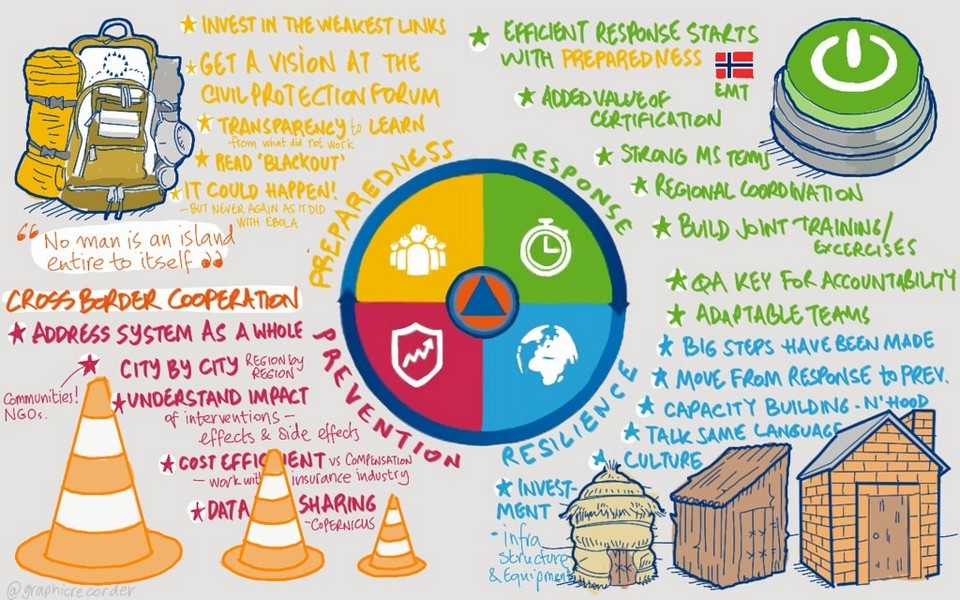 INVEST IN THE WEAKEST LINKS
GET A VISION AT THE
CIVIL PROTECTION FORUM
TRANSPARENCY to LEARN
from what did not work
READ 'BLACKOUT'
IT COULD HAPPEN!
- BUT NEVER AGAIN AS IT DID
WITH EBOLA
PREPAREDNESS
"No man is an island
entire to itself"
CROSS BORDER COOPERATION
ADDRESS SYSTEM AS A WHOLE
CITY BY CITY REGION by
REGION
Communities!
NGOs.
UNDERSTAND IMPACT
of interventions –
effects & side effects
COST EFFICIENT VS COMPENSATION
– work with insurance industry
DATA SHARING
- COPERNICUS
PREVENTION
EFFICIENT RESPONSE STARTS
WITH PREPAREDNESS
EMT
ADDED VALUE OF
CERTIFICATION
STRONG MS TEAMS
REGIONAL COORDINATION
BUILD JOINT TRAINING/
EXCERCISES
QA KEY FOR ACCOUNTABILITY
ADAPTABLE TEAMS
RESPONSE
BIG STEPS HAVE BEEN MADE
MOVE FROM RESPONSE to PREV.
CAPACITY BUILDING - N'HOOD
TALK SAME LANGUAGE
CULTURE
INVEST-
MENT
- infra
structure
& Equipment
RESILIENCE
@graphicrecorder